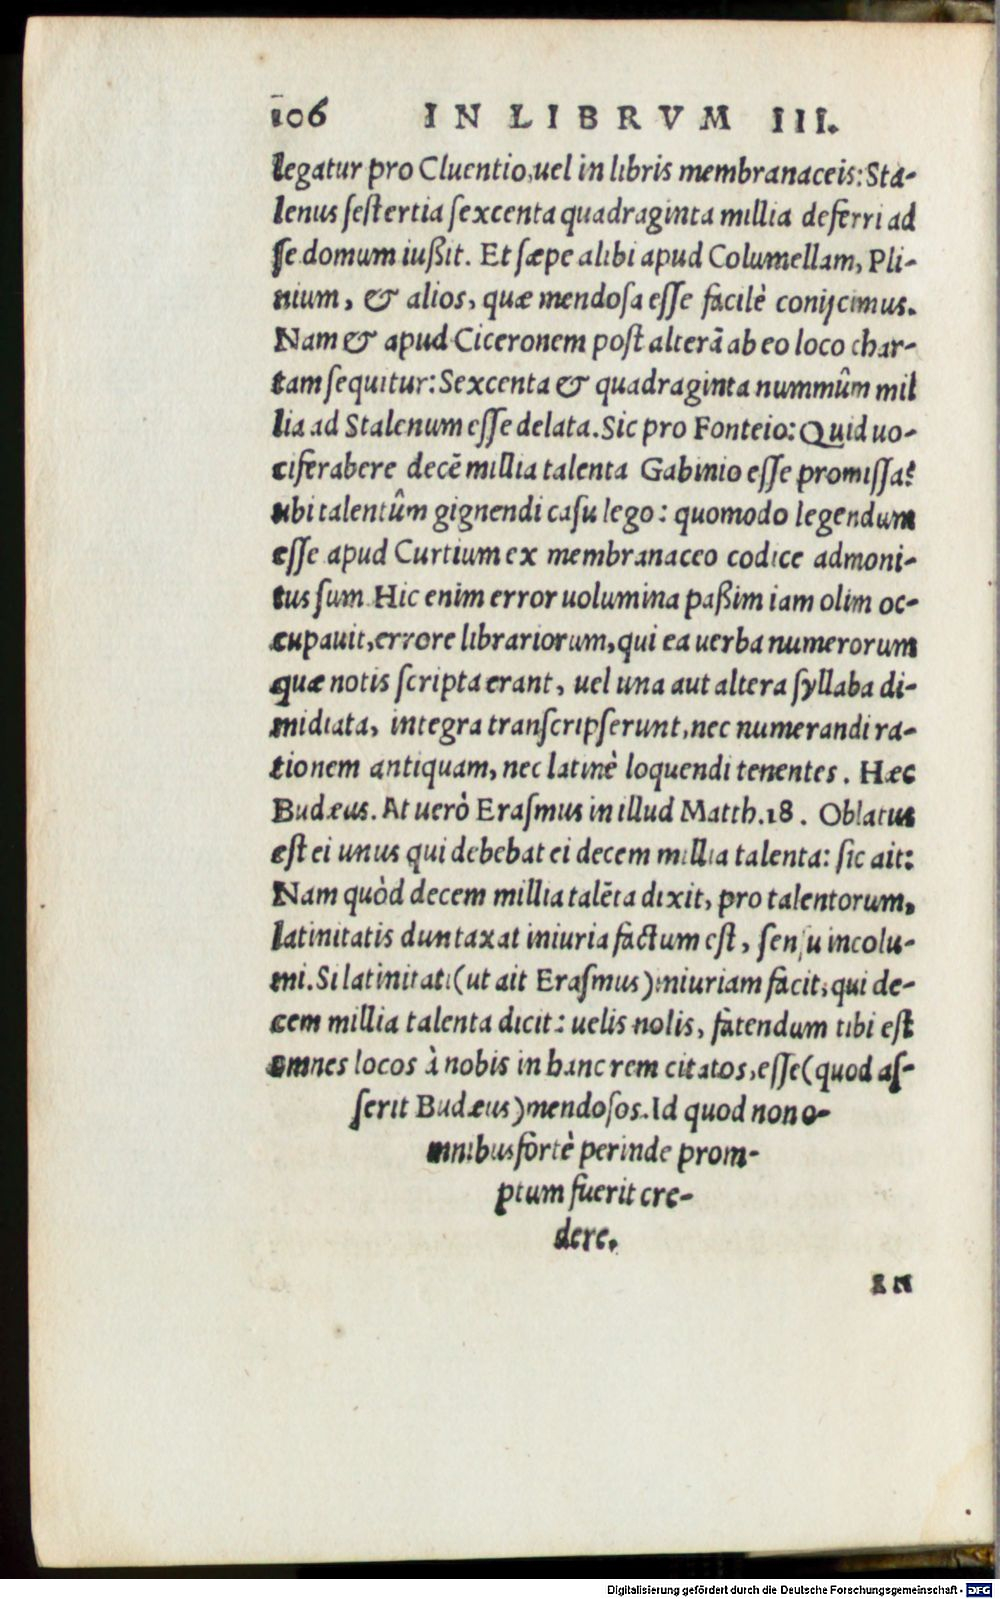 106 IN LIBRVM III.
legatur pro Cluentio, uel in libris membranaceis: Sta-
lenus ſeſtertia ſexcenta quadraginta millia deferri ad
ſe domum iußit. Et ſæpe alibi apud Columellam, Pli-
nium, & alios, quæ mendoſa eſſe facilè conijcimus.
Nam & apud Ciceronem poſt alterā ab eo loco char-
tam ſequitur: Sexcenta & quadraginta nummûm mil
lia ad Stalenum eſſe delata. Sic pro Fonteio: Quid uo-
ciferabere decē millia talenta Gabinio eſſe promiſſa?
ubi talentûm gignendi caſu lego: quomodo legendum
eſſe apud Curtium ex membranaceo codice admoni-
tus ſum. Hic enim error uolumina paßim iam olim oc-
cupauit, errore librariorum, qui ea uerba numerorum
quæ notis ſcripta erant, uel una aut altera ſyllaba di-
midiata, integra tranſcripſerunt, nec numerandi ra-
tionem antiquam, nec latinè loquendi tenentes. Hæc
Budæus. At uerò Eraſmus in illud Matth. 18. Oblatus
eſt ei unus qui debebat ei decem millia talenta: ſic ait:
Nam quòd decem millia talēta dixit, pro talentorum,
latinitatis duntaxat iniuria factum eſt, ſenſu incolu-
mi. Si latinitati (ut ait Eraſmus) iniuriam facit, qui de-
cem millia talenta dicit: uelis nolis, fatendum tibi eſt
omnes locos à nobis in hanc rem citatos, eſſe (quod aſ-
ſerit Budæus) mendoſos. Id quod non o-
mnibus fortè perinde prom-
ptum fuerit cre-
dere.
IN
Digitalisierung gefördert durch die Deutsche Forschungsgemeinschaft - DFG